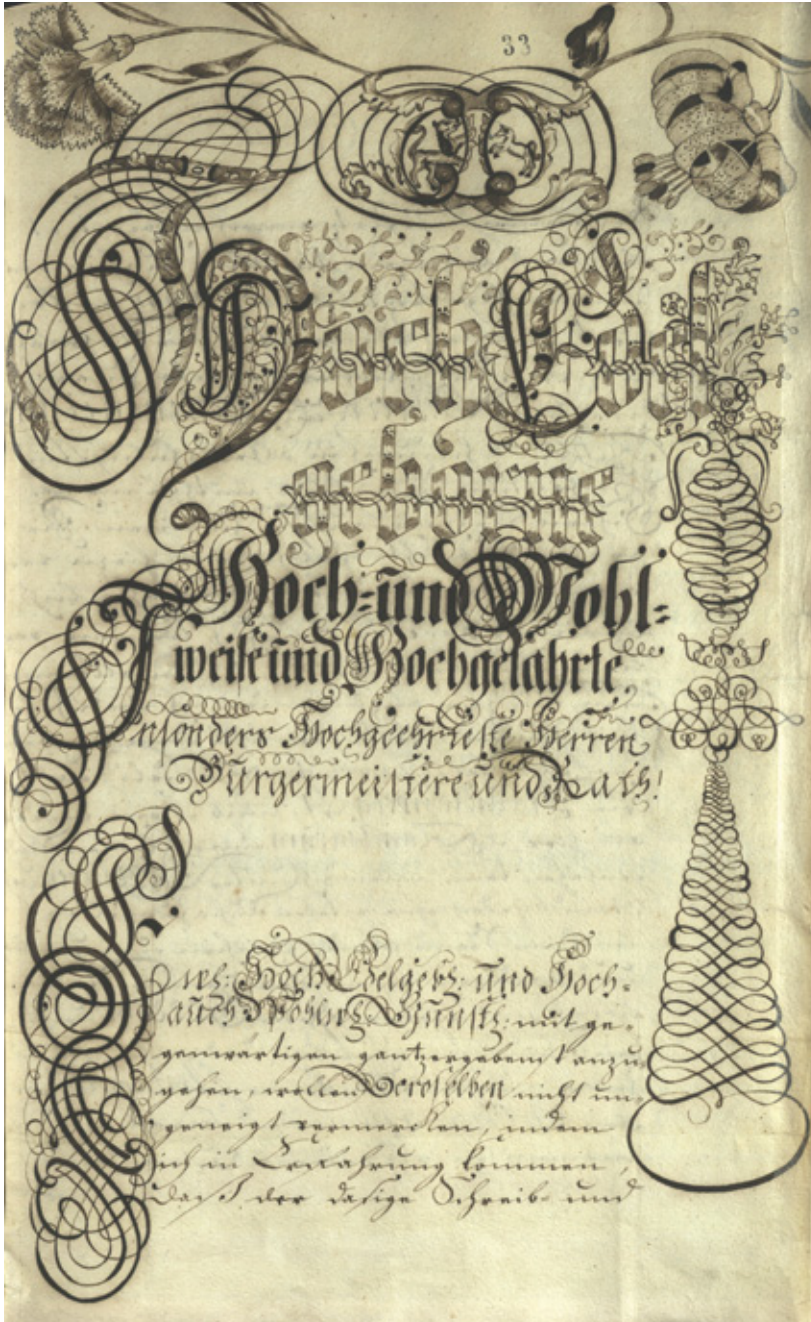 33
HochEdel
geborne
Hoch- und Wohl-
weise und Hochgelahrte,
Insonders Hochgeehrteste Herren
Bürgermeistere und Rath!
Ew: HochEdelgeb: und Hoch-
auch Wohlw: Gunst: mit ge-
genwärtigen gantz ergebenst anzu-
gehen, wollen Deroselben nicht un-
geneigt vermercken, indem
ich in Erfahrung kommen,
daß der dasige Schreib- und